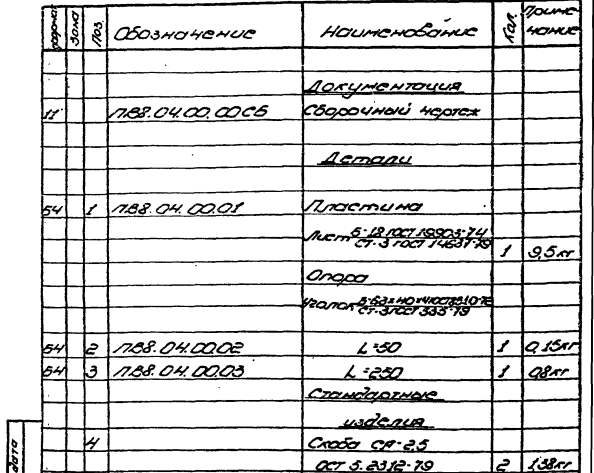 формат Зона Поз. Обозначение Наименование Кол. Приме-
чание
Документация
11 ПВ8.04.00.00СБ Сборочный чертеж
Детали
БЧ 1 ПВ8.04.00.01 Пластина
Лист Б-18 ГОСТ 19903-74
Ст.3 ГОСТ 14637-79 1 9,5кг
Опора
Уголок
Ст.3 ГОСТ 535-79
БЧ 2 ПВ8.04.00.02 L=50 1 0,15кг
БЧ 3 ПВ8.04.00.03 L=250 1 0,8кг
Стандартные
изделия
4 Скоба СА-2,5
ОСТ 5.2312-79 2 1,38кг
дата